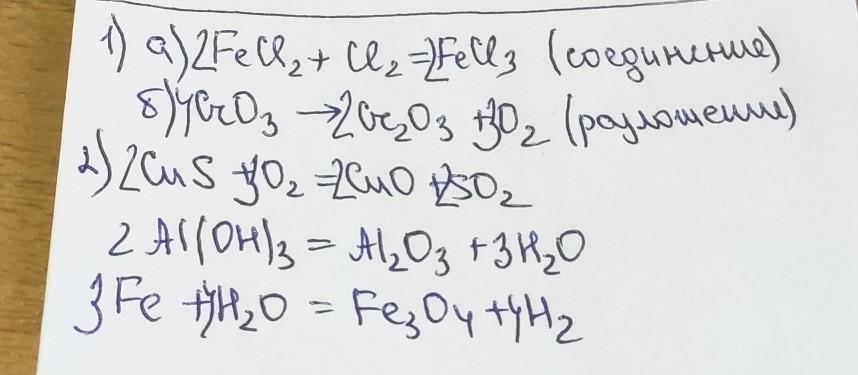 1) а) 2FeCl₂ + Cl₂ = 2FeCl₃ (соединение)
б) 4CrO₃ → 2Cr₂O₃ + 3O₂ (разложение)
2) 2CuS + 3O₂ = 2CuO + 2SO₂
2 Al(OH)₃ = Al₂O₃ + 3H₂O
3Fe + 4H₂O = Fe₃O₄ + 4H₂